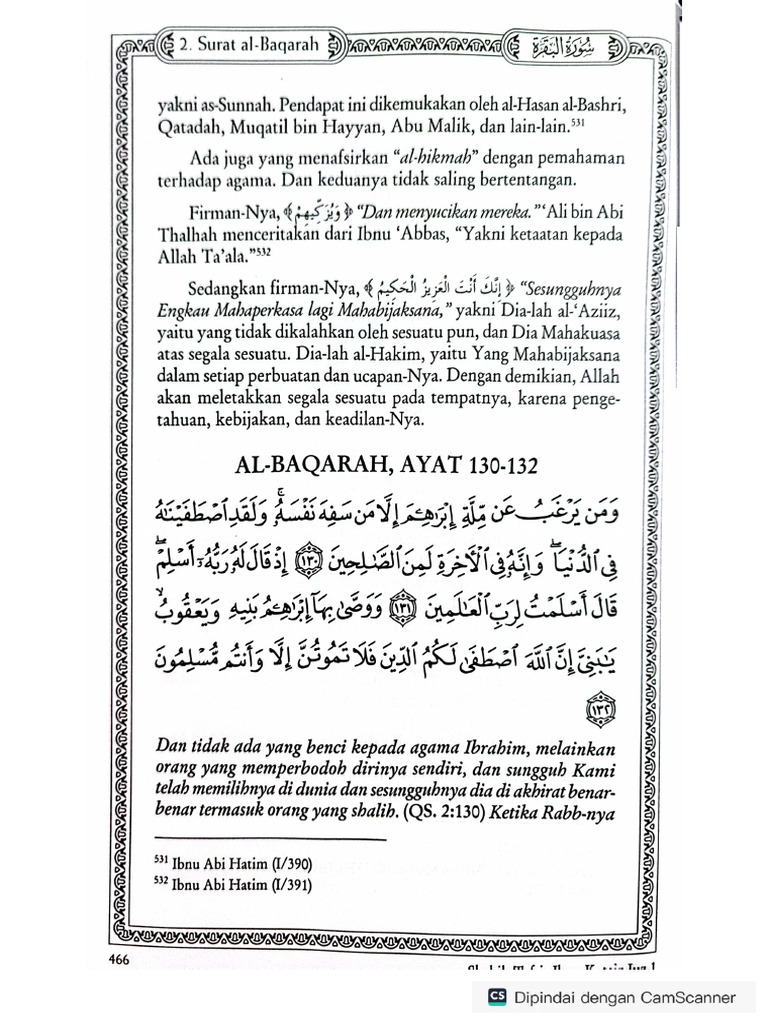 2. Surat al-Baqarah
سُورَةُ البَقَرَة
yakni as-Sunnah. Pendapat ini dikemukakan oleh al-Hasan al-Bashri,
Qatadah, Muqatil bin Hayyan, Abu Malik, dan lain-lain.⁵³¹
Ada juga yang menafsirkan “al-hikmah” dengan pemahaman
terhadap agama. Dan keduanya tidak saling bertentangan.
Firman-Nya, ﴿ وَيُزَكِّيهِمْ ﴾ “Dan menyucikan mereka.” ‘Ali bin Abi
Thalhah menceritakan dari Ibnu ‘Abbas, “Yakni ketaatan kepada
Allah Ta’ala.”⁵³²
Sedangkan firman-Nya, ﴿ إِنَّكَ أَنْتَ الْعَزِيزُ الْحَكِيمُ ﴾ “Sesungguhnya
Engkau Mahaperkasa lagi Mahabijaksana,” yakni Dia-lah al-‘Aziiz,
yaitu yang tidak dikalahkan oleh sesuatu pun, dan Dia Mahakuasa
atas segala sesuatu. Dia-lah al-Hakim, yaitu Yang Mahabijaksana
dalam setiap perbuatan dan ucapan-Nya. Dengan demikian, Allah
akan meletakkan segala sesuatu pada tempatnya, karena penge-
tahuan, kebijakan, dan keadilan-Nya.
AL-BAQARAH, AYAT 130-132
وَمَن يَرْغَبُ عَن مِّلَّةِ إِبْرَٰهِـۧمَ إِلَّا مَن سَفِهَ نَفْسَهُۥ ۚ وَلَقَدِ ٱصْطَفَيْنَـٰهُ
فِى ٱلدُّنْيَا ۖ وَإِنَّهُۥ فِى ٱلْـَٔاخِرَةِ لَمِنَ ٱلصَّـٰلِحِينَ ﴿١٣٠﴾ إِذْ قَالَ لَهُۥ رَبُّهُۥٓ أَسْلِمْ ۖ
قَالَ أَسْلَمْتُ لِرَبِّ ٱلْعَـٰلَمِينَ ﴿١٣١﴾ وَوَصَّىٰ بِهَآ إِبْرَٰهِـۧمُ بَنِيهِ وَيَعْقُوبُ
يَـٰبَنِىَّ إِنَّ ٱللَّهَ ٱصْطَفَىٰ لَكُمُ ٱلدِّينَ فَلَا تَمُوتُنَّ إِلَّا وَأَنتُم مُّسْلِمُونَ
﴿١٣٢﴾
Dan tidak ada yang benci kepada agama Ibrahim, melainkan
orang yang memperbodoh dirinya sendiri, dan sungguh Kami
telah memilihnya di dunia dan sesungguhnya dia di akhirat benar-
benar termasuk orang yang shalih. (QS. 2:130) Ketika Rabb-nya
⁵³¹ Ibnu Abi Hatim (I/390)
⁵³² Ibnu Abi Hatim (I/391)
466
CS Dipindai dengan CamScanner